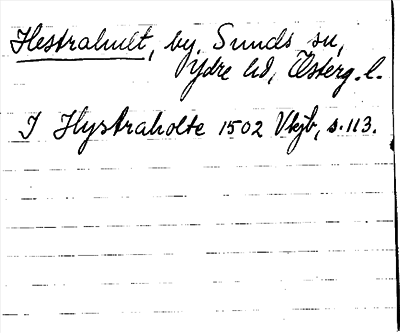 Hestrahult, by, Sunds sn,
Ydre hd, Österg. l.
I Hystraholte 1502 Vkjb, s. 113.